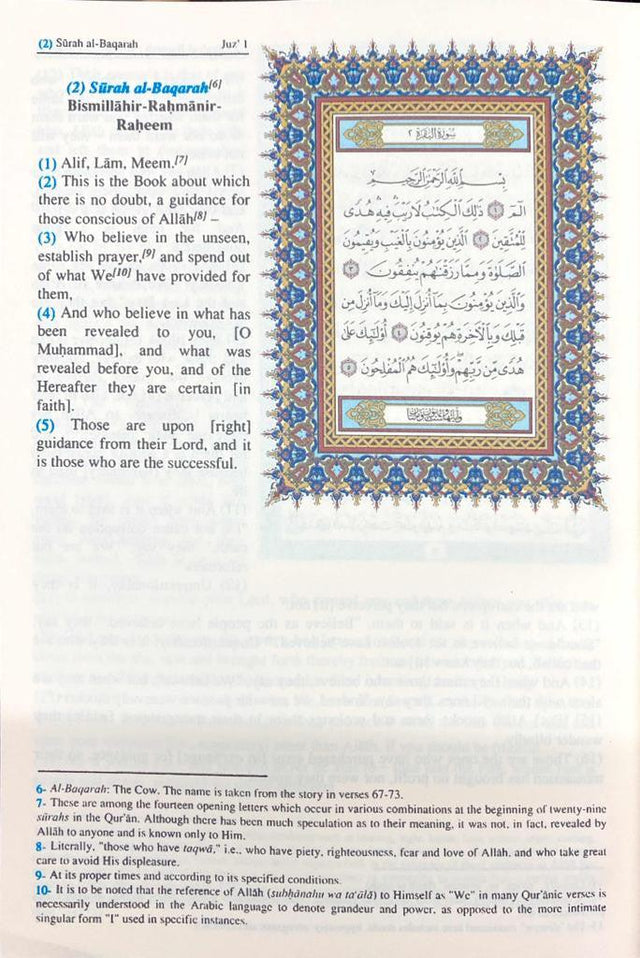 (2) Sūrah al-Baqarah Juz' 1
(2) Sūrah al-Baqarah[6]
Bismillāhir-Raḥmānir-
Raḥeem
(1) Alif, Lām, Meem.[7]
(2) This is the Book about which
there is no doubt, a guidance for
those conscious of Allāh[8] –
(3) Who believe in the unseen,
establish prayer,[9] and spend out
of what We[10] have provided for
them,
(4) And who believe in what has
been revealed to you, [O
Muḥammad], and what was
revealed before you, and of the
Hereafter they are certain [in
faith].
(5) Those are upon [right]
guidance from their Lord, and it
is those who are the successful.
سُورَةُ البَقَرَةِ ٢
بِسْمِ ٱللَّهِ ٱلرَّحْمَٰنِ ٱلرَّحِيمِ
الٓمٓ ١ ذَٰلِكَ ٱلْكِتَٰبُ لَا رَيْبَ فِيهِ هُدًى
لِّلْمُتَّقِينَ ٢ ٱلَّذِينَ يُؤْمِنُونَ بِٱلْغَيْبِ وَيُقِيمُونَ
ٱلصَّلَوٰةَ وَمِمَّا رَزَقْنَٰهُمْ يُنفِقُونَ ٣
وَٱلَّذِينَ يُؤْمِنُونَ بِمَآ أُنزِلَ إِلَيْكَ وَمَآ أُنزِلَ مِن
قَبْلِكَ وَبِٱلْءَاخِرَةِ هُمْ يُوقِنُونَ ٤ أُو۟لَٰٓئِكَ عَلَىٰ
هُدًى مِّن رَّبِّهِمْ وَأُو۟لَٰٓئِكَ هُمُ ٱلْمُفْلِحُونَ ٥
6- Al-Baqarah: The Cow. The name is taken from the story in verses 67-73.
7- These are among the fourteen opening letters which occur in various combinations at the beginning of twenty-nine
sūrahs in the Qur'ān. Although there has been much speculation as to their meaning, it was not, in fact, revealed by
Allāh to anyone and is known only to Him.
8- Literally, "those who have taqwā," i.e., who have piety, righteousness, fear and love of Allāh, and who take great
care to avoid His displeasure.
9- At its proper times and according to its specified conditions.
10- It is to be noted that the reference of Allāh (subḥānahu wa ta'ālā) to Himself as "We" in many Qur'ānic verses is
necessarily understood in the Arabic language to denote grandeur and power, as opposed to the more intimate
singular form "I" used in specific instances.